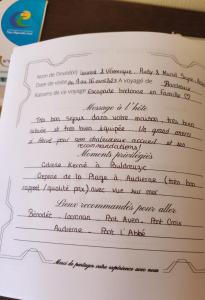 Nom de l'invité(e) Laurence & Véronique, Rudy & Muriel
Date de visite 9 au 16 avril A voyagé de Bordeaux
Raisons de ce voyage Escapade bretonne en Famille ♡
Message à l'hôte
Très bon séjour dans votre maison, très bien
située et très bien équipée. Un grand merci
à Hervé pour son chaleureux accueil et ses
recommandations!
Moments privilégiés
Cidrerie Kerné à Pouldreuzic
Crêperie de la Plage à Audierne (très bon
rapport/qualité prix) avec vue sur mer
Lieux recommandés pour aller
Bénodet - Locronan - Pont Aven - Pont Croix
Audierne - Pont l'Abbé
Merci de partager votre expérience avec nous